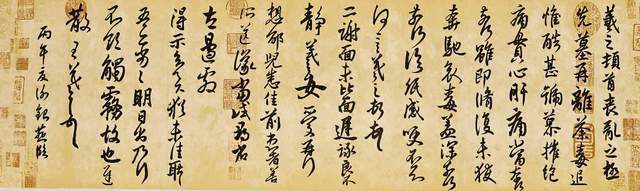 羲之頓首喪亂之極
先墓再離荼毒追
惟酷甚號慕摧絕
痛貫心肝痛當奈何
奈何雖即脩復未獲
奔馳哀毒益深奈何
奈何臨紙感哽不知
何言羲之頓首
二謝面未比面遲詠良
不靜羲之女愛再拜
想邵兒悉佳前患者善
所送議當試尋省
左邊劇
得示知足下猶未佳耿
耿吾亦劣劣明日出乃行
不欲觸霧故也遲
散王羲之頓首
丙午夏